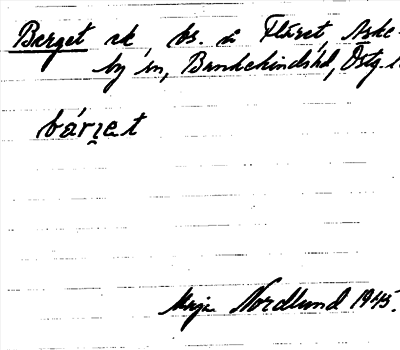 Berget sk, bs. å Fläret, Aske-
by sn, Bankekinds hd, Östg. l
bárget
Maja Nordlund 1945.